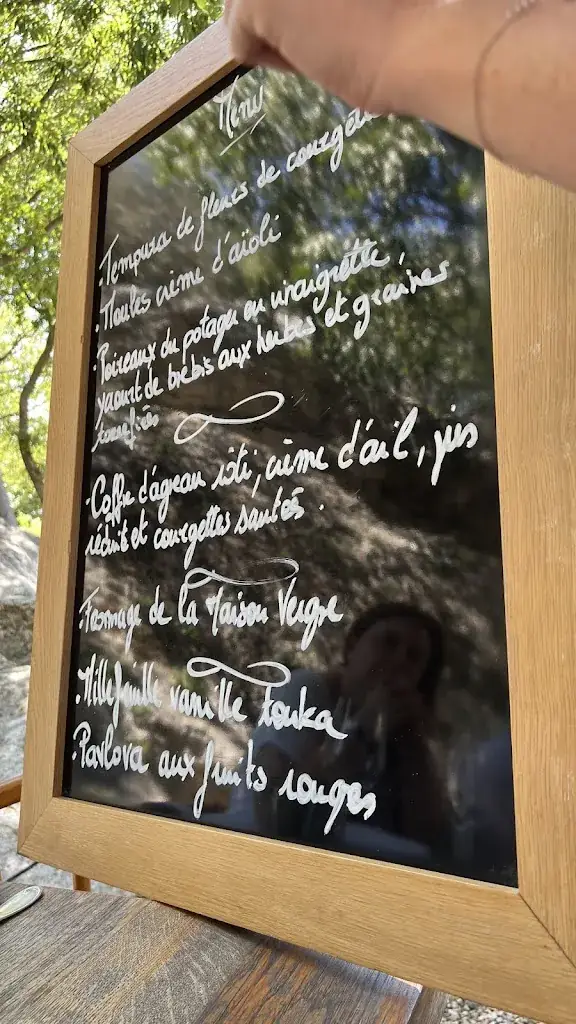 Menu
. Tempura de fleurs de courgette
. Moules crème d'aïoli
. Poireaux du potager en vinaigrette,
yaourt de brebis aux herbes et graines
torrefiées
. Coffre d'agneau rôti, crème d'ail, jus
réduit et courgettes sautées .
. Fromage de la Maison Vergne
. Millefeuille vanille tonka
. Pavlova aux fruits rouges